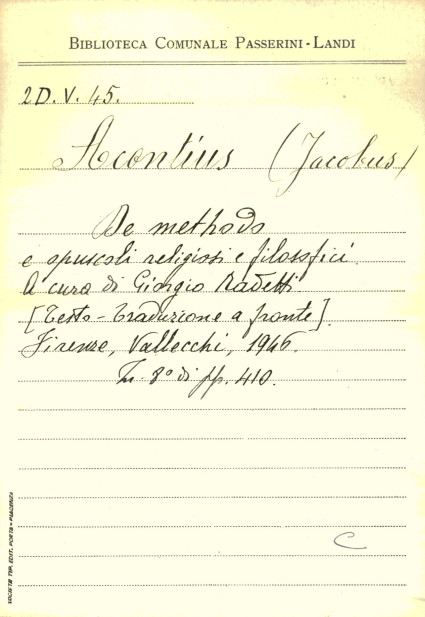 BIBLIOTECA COMUNALE PASSERINI-LANDI
2D.V.45.
Acontius (Jacobus)
De methodo
e opuscoli religiosi e filosofici
A cura di Giorgio Radetti
[Testo-traduzione a fronte].
Firenze, Vallecchi, 1946.
In 8° di pp. 410.
C
SOCIETÀ TIP. EDIT. PORTA - PIACENZA